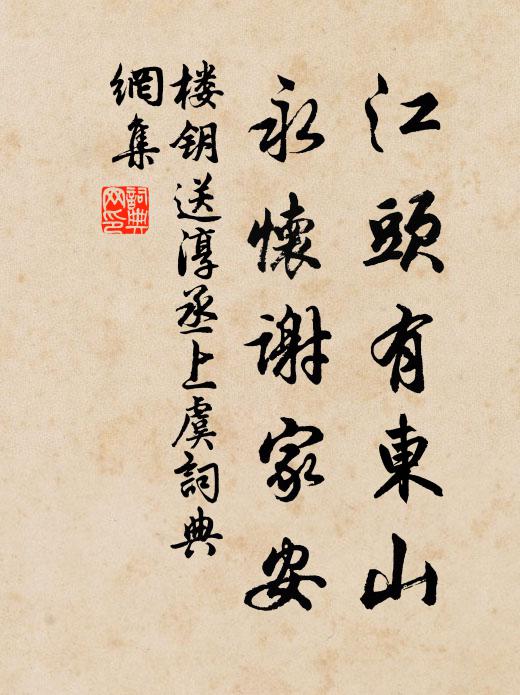 江頭有東山
永懷謝家安
楼钥送淳丞上虞詞典
網集
詞典
网印